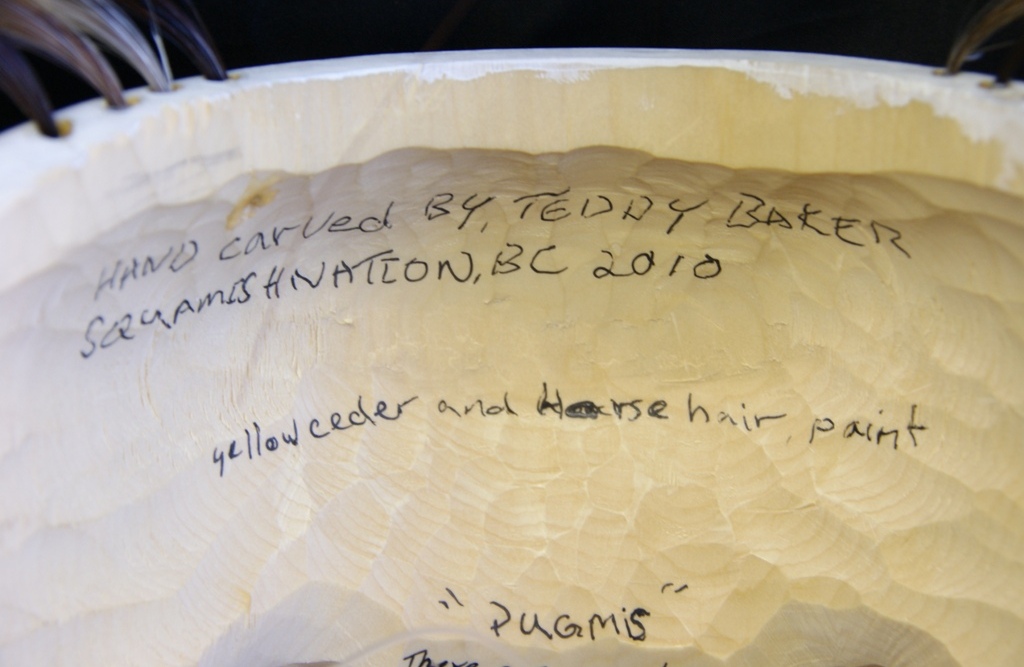 HAND carved BY, TEDDY BAKER
SQUAMISH NATION, BC 2010
yellow ceder and Horse hair, paint
"PUGMIS"